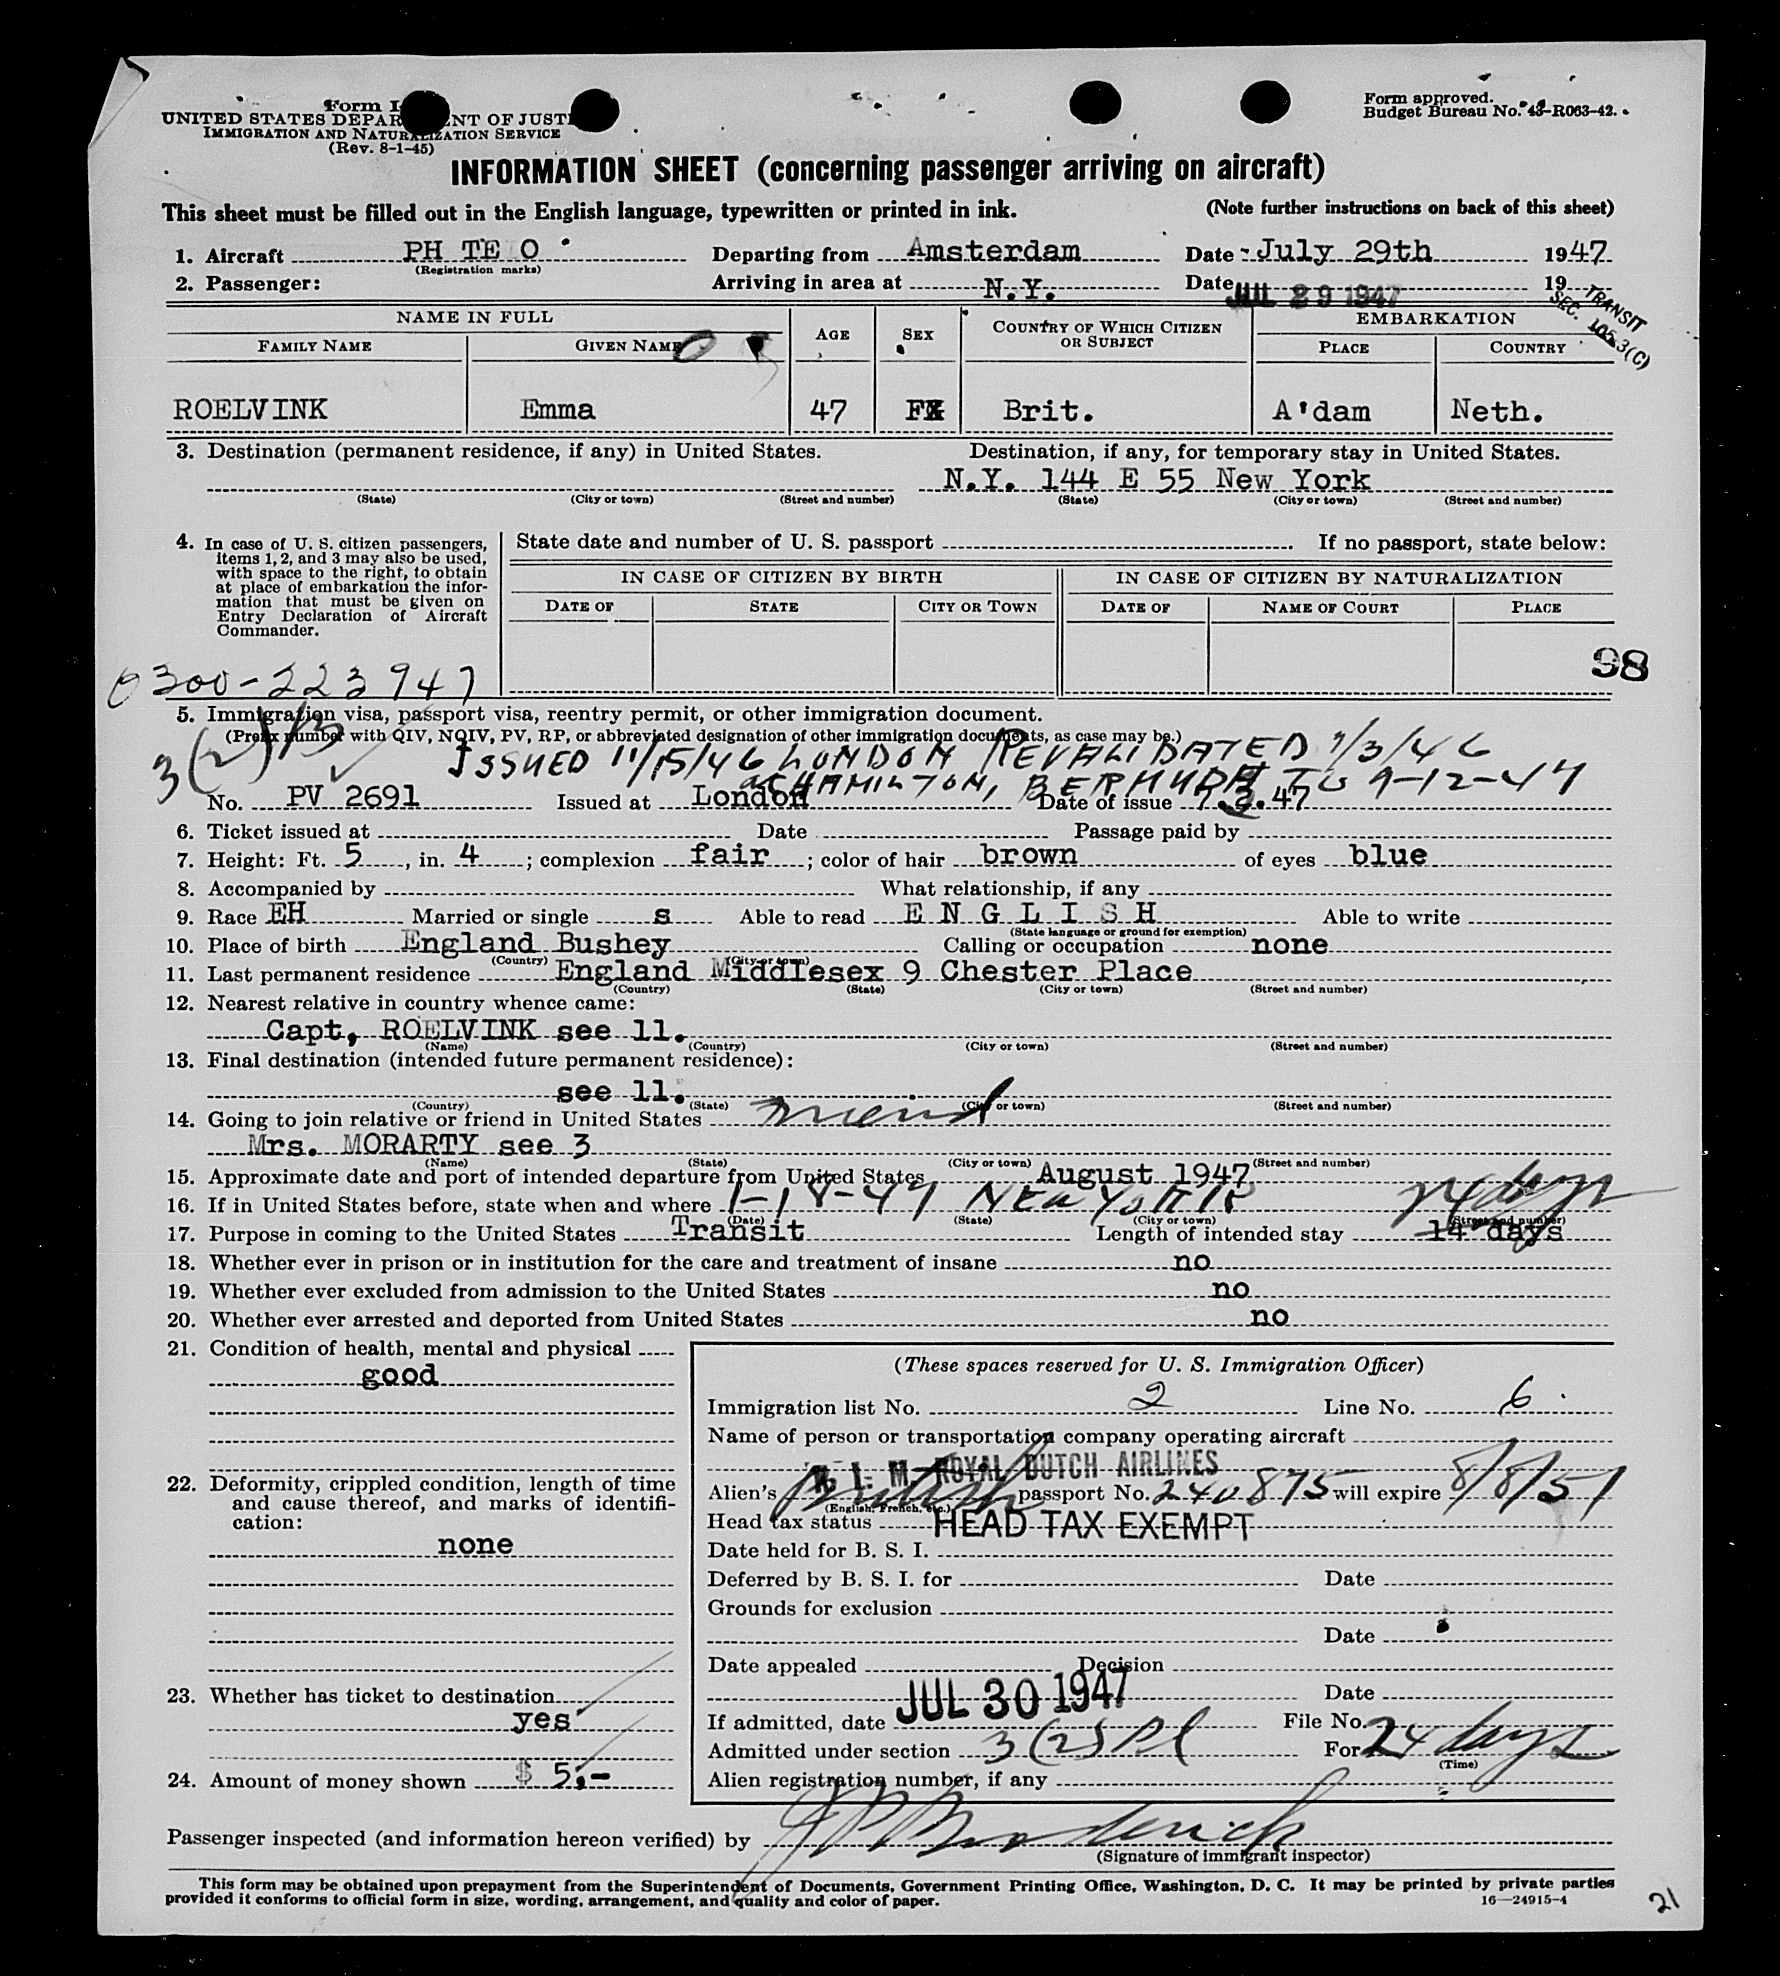 Form I
UNITED STATES DEPAR NT OF JUST
IMMIGRATION AND NATURALIZATION SERVICE
(Rev. 8-1-45)
Form approved.
Budget Bureau No. 43-R063-42.
INFORMATION SHEET (concerning passenger arriving on aircraft)
This sheet must be filled out in the English language, typewritten or printed in ink. (Note further instructions on back of this sheet)
1. Aircraft PH TE O Departing from Amsterdam Date July 29th 1947
(Registration marks)
2. Passenger: Arriving in area at N.Y. Date JUL 29 1947 19
TRANSIT
SEC. 105.3(C)
NAME IN FULL AGE SEX COUNTRY OF WHICH CITIZEN OR SUBJECT EMBARKATION
FAMILY NAME GIVEN NAME PLACE COUNTRY
ROELVINK Emma 47 FX Brit. A'dam Neth.
3. Destination (permanent residence, if any) in United States. Destination, if any, for temporary stay in United States.
N.Y. 144 E 55 New York
(State) (City or town) (Street and number) (State) (City or town) (Street and number)
4. In case of U. S. citizen passengers,
items 1, 2, and 3 may also be used,
with space to the right, to obtain
at place of embarkation the infor-
mation that must be given on
Entry Declaration of Aircraft
Commander.
State date and number of U. S. passport If no passport, state below:
IN CASE OF CITIZEN BY BIRTH IN CASE OF CITIZEN BY NATURALIZATION
DATE OF STATE CITY OR TOWN DATE OF NAME OF COURT PLACE
98
0300-223947
5. Immigration visa, passport visa, reentry permit, or other immigration document.
(Prefix number with QIV, NQIV, PV, RP, or abbreviated designation of other immigration documents, as case may be.)
3(2)
ISSUED 11/15/46 LONDON REVALIDATED 7/3/46
HAMILTON, BERMUDA TO 9-12-47
No. PV 2691 Issued at London Date of issue 7.2.47
6. Ticket issued at Date Passage paid by
7. Height: Ft. 5, in. 4; complexion fair; color of hair brown of eyes blue
8. Accompanied by What relationship, if any
9. Race EH Married or single s Able to read ENGLISH Able to write
(State language or ground for exemption)
10. Place of birth England Bushey Calling or occupation none
(Country) (City or town)
11. Last permanent residence England Middlesex 9 Chester Place
(Country) (State) (City or town) (Street and number)
12. Nearest relative in country whence came:
Capt, ROELVINK see 11.
(Name) (Country) (City or town) (Street and number)
13. Final destination (intended future permanent residence):
see 11.
(Country) (State) (City or town) (Street and number)
14. Going to join relative or friend in United States friend
Mrs. MORARTY see 3
(Name) (State) (City or town) (Street and number)
15. Approximate date and port of intended departure from United States August 1947
16. If in United States before, state when and where 1-18-47 NEW YORK 24 days
(Date) (State) (City or town) (Street and number)
17. Purpose in coming to the United States Transit Length of intended stay 14 days
18. Whether ever in prison or in institution for the care and treatment of insane no
19. Whether ever excluded from admission to the United States no
20. Whether ever arrested and deported from United States no
21. Condition of health, mental and physical
good
22. Deformity, crippled condition, length of time
and cause thereof, and marks of identifi-
cation:
none
23. Whether has ticket to destination
yes
24. Amount of money shown $ 5,-
(These spaces reserved for U. S. Immigration Officer)
Immigration list No. 2 Line No. 6
Name of person or transportation company operating aircraft
K. L. M. ROYAL DUTCH AIRLINES
Alien's British passport No. 240875 will expire 8/8/51
(English, French, etc.)
Head tax status HEAD TAX EXEMPT
Date held for B. S. I.
Deferred by B. S. I. for Date
Grounds for exclusion
Date
Date appealed Decision
Date
If admitted, date JUL 30 1947 File No.
Admitted under section 3(2) For 24 days
(Time)
Alien registration number, if any
Passenger inspected (and information hereon verified) by
(Signature of immigrant inspector)
This form may be obtained upon prepayment from the Superintendent of Documents, Government Printing Office, Washington, D. C. It may be printed by private parties
provided it conforms to official form in size, wording, arrangement, and quality and color of paper. 16—24915-4
21